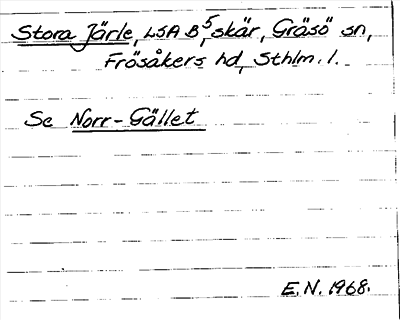 Stora Järle, LSA B5, skär, Gräsö sn,
Frösåkers hd, Sthlm. l.
Se Norr-Gället
E.N. 1968.